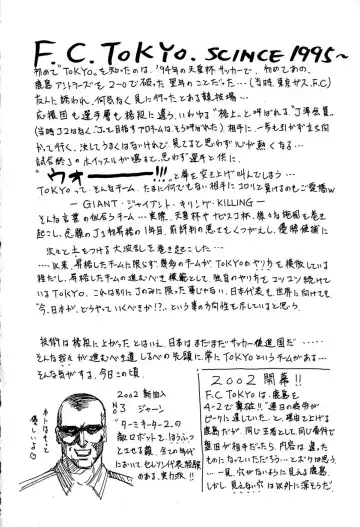 F.C.TOKYO. SCINCE 1995~
初めて"TOKYO"を知ったのは、'94年の天皇杯サッカーで、初めてあの、
鹿島アントラーズを2-0で破った翌年のことだった…(当時、東京ガス.F.C)
友人に誘われ、何気なく見に行ったとある競技場…
応援団も選手層も格段に違う、いわゆる"格上"と呼ばれる『J準会員』
(当時J2はなく、Jって目指すアロチームはそう呼ばれた)相手に、一歩も引かず立ち向
かって行く、決してうまくはないけれど、見てると思わず心が熱くなる…
試合終了のホイッスルが鳴ると、思わず選手と供に、
"ウォーーー!!!"
と拳を突き上げ叫んでしまう…
TOKYOって、そんなチーム。たまに何でもない相手にコロリと負けるのもご愛嬌w
― GIANT・ジャイアント・キリング・KILLING ―
そんな言葉の似合うチーム…実際、天皇杯やナビスコ杯、様々な施風を巻き
起こし、念願のJ1初昇格の1年目、前評判の悪さもくつがえし、優勝候補に
次々と土をつける大波乱を巻き起こした…
…以来、昇格したチームに限らず幾多のチームがTOKYOのやり方を模倣している
様だし、昇格したチームの進むべき模範として、独自のやり方でコツコツ続けて
いるTOKYO。これは別にJのみに限った事じゃない、日本代表も、世界に向けても
"今、日本が、どうやっていくべきか!?"、という事の方向性を示してると思う。
技術は格段に上がったとはいえ、日本はまだまだ"サッカー後進国"だ…
そんな我々が進むべき道しるべの先頭に、常にTOKYOというチームがある…
そんな気がする、今日この頃。
ホントはもっと
優しいよ
2002 新加入
NO 3 ジャーン
"ターミネーター2"の
敵ロボットを、ほうふつ
とさせる顔。今この年代
において、セレソン代表経験
のある、実力派!!
2002 開幕!!
F.C.TOKYOは、鹿島を
4-2で撃破!!"連日の疲労が
ピークに達していた"と、理由を上げる
鹿島だが、同じ王者として同じ条件で
磐田が相手だったら、内容は違った
ものになっていただろう…とボクは思う。
…一見、穴がないように見える鹿島、
しかし見えない"穴"は以外に深そうだ!